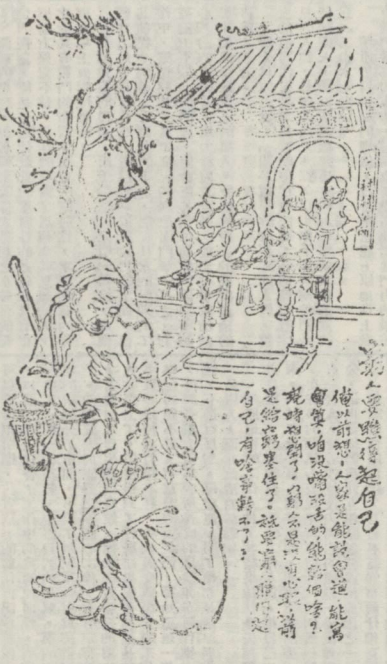 窮人要瞧得起自己
俺以前想：人家是能說會道，能寫
會算，咱沒嘴沒舌的能幹個啥？
現時想開了，窮人是沒有
是給窮塞住了。祗要窮人瞧得起
自己，有啥事辦不了？